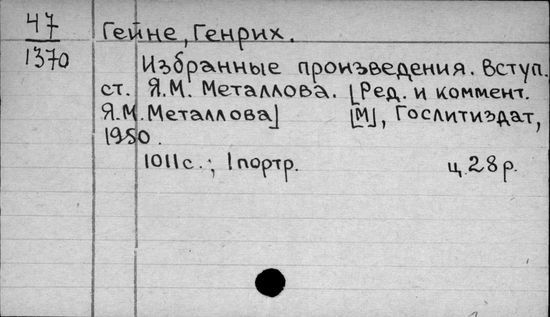 47 Гейне, Генрих.
1370
Избранные произведения. Вступ.
ст. Я.М. Металлова. [Ред. и коммент.
Я.М. Металлова] [М], Гослитиздат,
1950.
1011 с.; 1 портр. ц. 28 р.